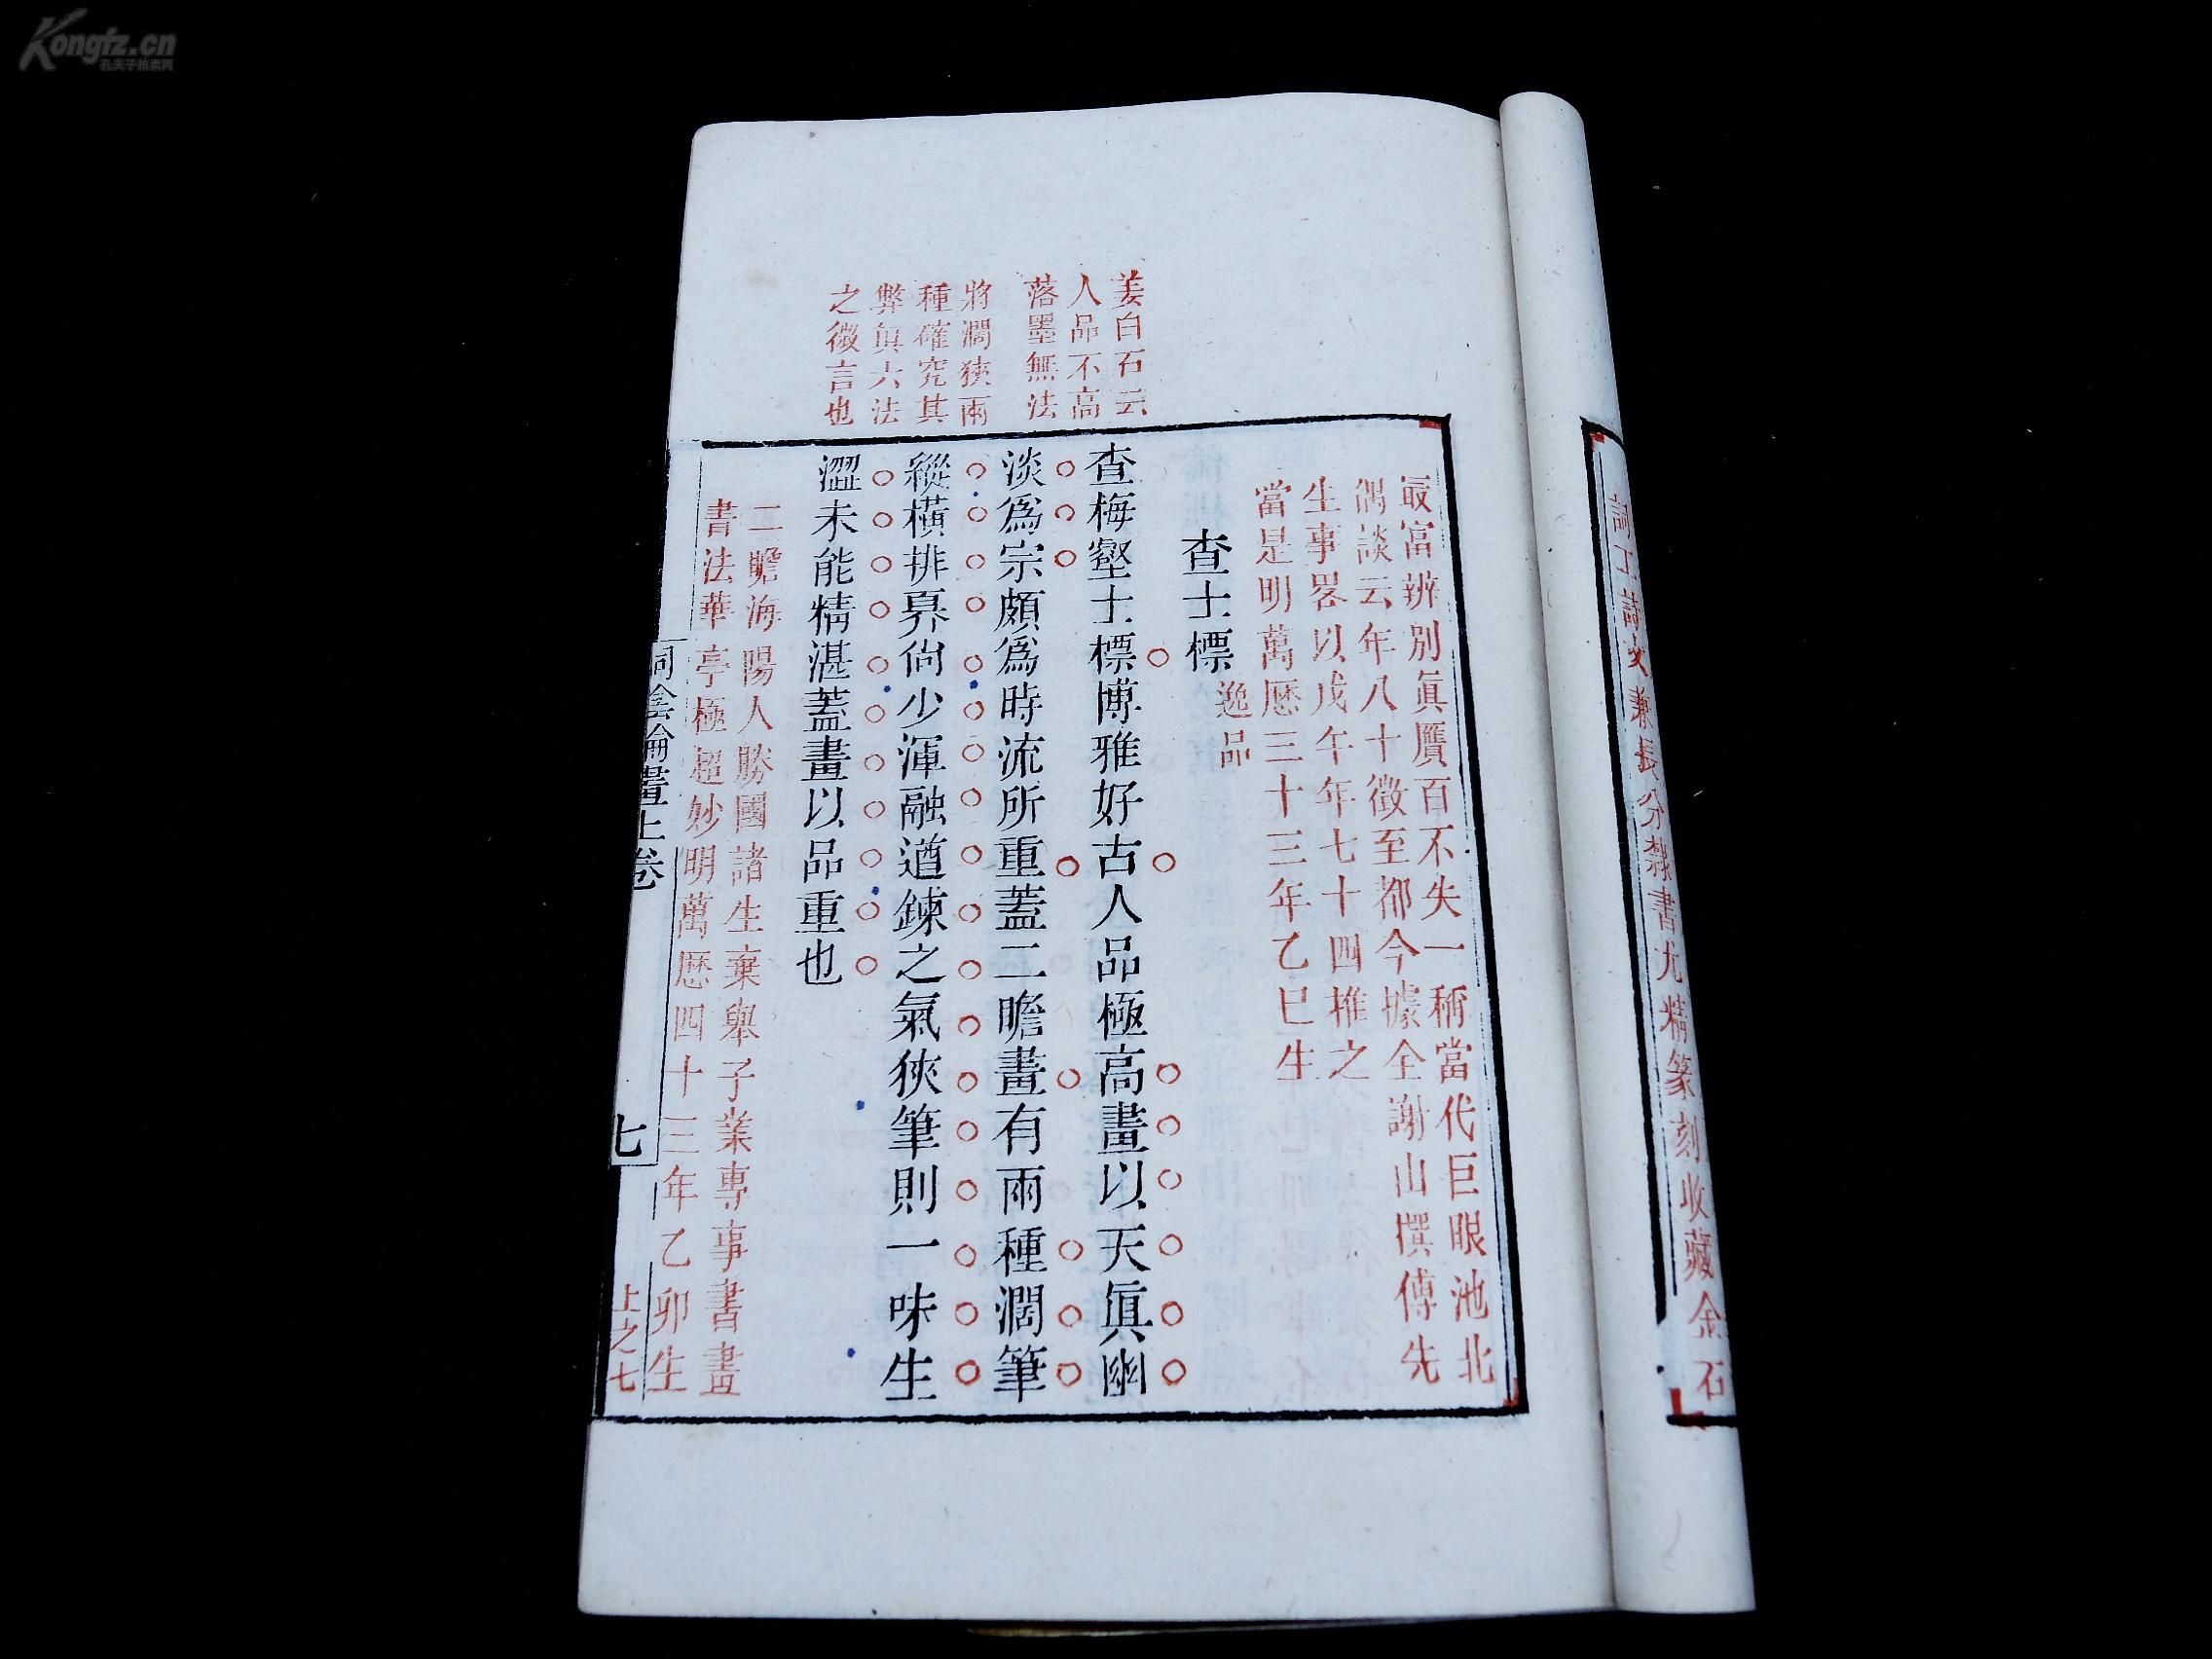 Kongfz.cn
孔夫子拍卖网
詞工詩文兼長分隸書尤精篆刻收藏金石
姜白石云
人品不高
落墨無法
將濶狹兩
種確究其
弊眞六法
之微言也
最富辨別眞贋百不失一稱當代巨眼池北
偶談云年八十徵至都今據全謝山撰傳先
生事畧以戊午年七十四推之
當是明萬厯三十三年乙巳生
查士標
逸品
查梅壑士標博雅好古人品極高畫以天眞幽
淡爲宗頗爲時流所重蓋二瞻畫有兩種濶筆
縱橫排奡尙少渾融遒鍊之氣狹筆則一味生
澀未能精湛蓋畫以品重也
二瞻海陽人勝國諸生棄舉子業專事書畫
書法華亭極超妙明萬厯四十三年乙卯生
桐陰論畫上卷
七
上之七